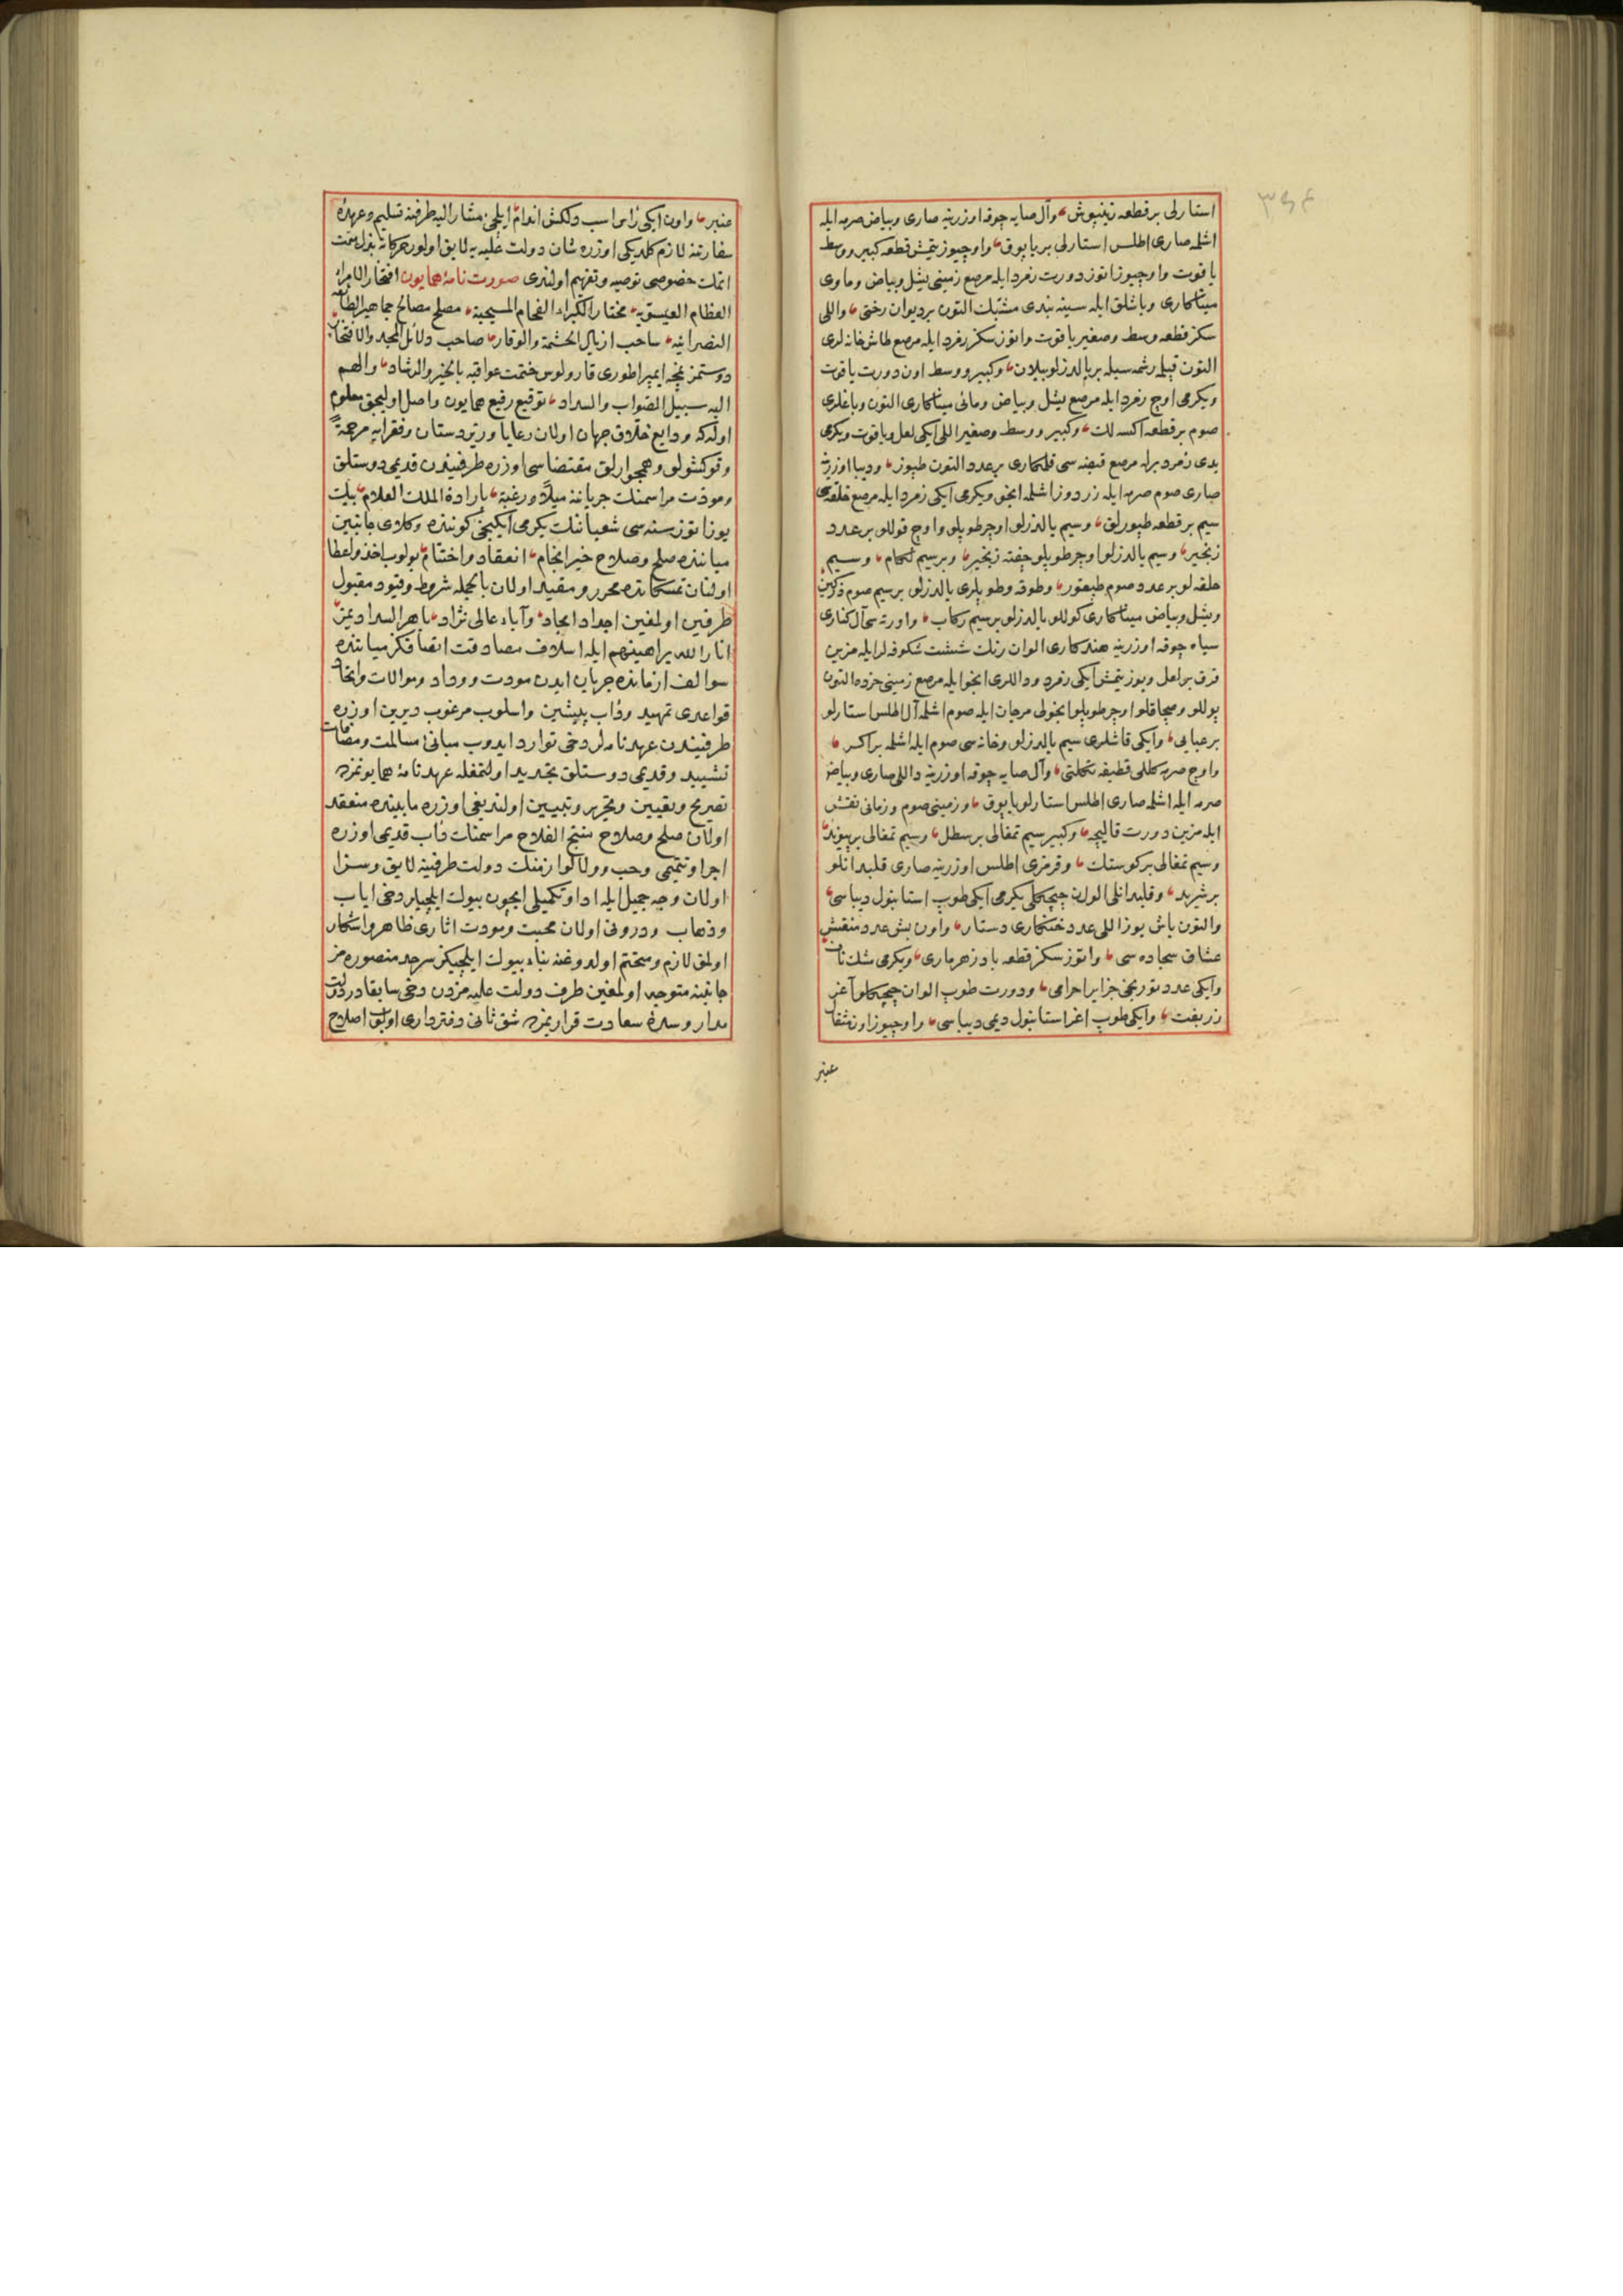 ٣٤۶
استارلی بر قطعه زینپوش، وآل صایه چوقه اوزرینه صاری وبیاض صرمه ایله
اشلمه صاری اطلس استارلی بر یاپوق، واوچیوز یتمش قطعه کبیر ووسط
یاقوت واوچیوز اتوز دورت زمرد ایله مرصع زمینی یشل وبیاض وماوی
میناکاری وباشلق ایله سینه بندی مشبک التون بر دیوان رختی، واللی
سکز قطعه وسط وصغیر یاقوت واتوز سکز زمرد ایله مرصع طاش خانه لری
التون قپلمه رشمه سیله بر یالدزلو پیلان، وکبیر ووسط اون دورت یاقوت
ویکرمی اوچ زمرد ایله مرصع یشل وبیاض ومائی میناکاری التون وباغلری
صوم بر قطعه اکسه لک، وکبیر ووسط وصغیر اللی ایکی لعل ویاقوت ویکرمی
یدی زمرد برله مرصع قبضه سی قلمکاری بر عدد التون طپوز، ودیبا اوزرینه
صاری صوم صرمه ایله زردوز اشلمه انجو ویکرمی ایکی زمرد ایله مرصع حلقه سی
سیم بر قطعه طپوزلق، وسیم یالدزلو اوچر طوپلو واوچ قوللو بر عدد
زنجیر، وسیم یالدزلو اوچر طوپلو جفته زنجیر، وبر سیم لکام، وسیم
حلقه لو بر عدد صوم طبقور، وطوقه وطوپلری یالدزلو بر سیم صوم
ویشل وبیاض میناکاری کوللو یالدزلو بر سیم رکاب، واورته سی آل کناری
سیاه چوقه اوزرینه هندکاری الوان رنک شکوفه لر ایله مزین
قرق بر لعل ویوز یتمش ایکی زمرد ودالری انجو ایله مرصع زمینی خرده التون
پوللو وصچاقلو اوچر طوپلو انجولی مرجان ایله صوم اشلمه آل اطلس استارلو
بر عبایی، وایکی قاشلری سیم یالدزلو وخانه سی صوم ایله اشلمه بر اکر،
واوچ صرمه کللی قطیفه تکلتی، وآل صایه چوقه اوزرینه داللی صاری وبیاض
صرمه ایله اشلمه صاری اطلس استارلو یاپوق، وزمینی صوم وزمانی نقش
ایله مزین دورت قالیچه، وکبیر سیم تمغالی بر سطل، وسیم تمغالی بر پیوند،
وسیم تمغالی بر کوستک، وقرمزی اطلس اوزرینه صاری قلبدانلو
بر شرید، وقلبدانلی الوان چیچکلی یکرمی ایکی طوپ استانبول دیباسی،
والتون باش یوز اللی عدد خنکاری دستار، واون بش عدد منقش
عشاق سجاده سی، واتوز سکز قطعه باد زهر ماری، ویکرمی مسک نافه
وایکی عدد جزایر احرامی، ودورت طوپ الوان چیچکلو آغر
زربفت، وایکی طوپ اغر استانبول دیمی دیباسی، واوچیوز اون مثقال
عنبر
عنبر، واون ایکی راس اسب دلکش اندام ایلچیٔ مشار الیه طرفنه تسلیم وعهدهٔ
سفارتنه لازم کلدیکی اوزره شان دولت علیه یه لایق اولور حرکاته بذل همت
اتمک خصوصی توصیه وتفهیم اولندی صورت نامهٔ همایون افتخار الامراء
العظام العیسویه، مختار الکبراء الفخام المسیحیة، مصلح مصالح جماهیر الطائفة
النصرانیه، ساحب اذیال الحشمة والوقار، صاحب دلائل المجد والافتخار،
دوستمز نمچه ایمپراطوری قارولوس ختمت عواقبه بالخیر والرشاد، والهم
الیه سبیل الصواب والسداد، توقیع رفیع همایون واصل اولیجق معلوم
اوله که ودایع خلاق جهان اولان رعایا وزیردستان وفقرایه مرحمةً
وقوکشولق وهمجوارلق مقتضاسی اوزره طرفیندن قدیمی دوستلق
ومودت مراسمنک جریاننه میلاً ورغبة، بارادة الملک العلام، بیک
یوز اتوز سنه سی شعباننک یکرمی ایکینجی کوننده وکلای جانبین
میاننده صلح وصلاح خیر انجام، انعقاد واختتام، بولوب اخذ واعطا
اولنان تمسکاتده محرر ومقید اولان بالجمله شروط وقیود مقبول
طرفین اولمغین اجداد امجاد، وآباء عالی نژاد، باهر السدادیمز،
انار الله براهینهم ایله اسلاف مصادقت اتصافکز میاننده
سوالف ازمانده جریان ایدن مودت ووداد وموالات واتحاد
قواعدی تمهید ودأب پیشین واسلوب مرغوب دیرین اوزره
طرفیندن عهدنامه لر دخی توارد ایدوب مبانیٔ مسالمت ومصافات
تشیید وقدیمی دوستلق تجدید اولنمغله عهدنامهٔ همایونمزده
تصریح وتعیین وتحریر وتبیین اولندیغی اوزره مابینده منعقد
اولان صلح وصلاح منتج الفلاح مراسمنک دأب قدیمی اوزره
اجرا وتتمیمی وحب وولا لوازمنک دولت طرفینه لایق وسزا
اولان وجه جمیل ایله ادا وتکمیلی ایچون بیوک ایلچیلر دخی ایاب
وذهاب ودرونی اولان محبت ومودت اثاری ظاهر واشکار
اولمق لازم ومتحتم اولدوغنه بناء بیوک ایلچیکز سرحد منصوره مز
جانبنه متوجه اولمغین طرف دولت علیه مزدن دخی سابقا در دولت
مدار وسدهٔ سعادت قراریمزده شق ثانی دفترداری اولوب اصلاح